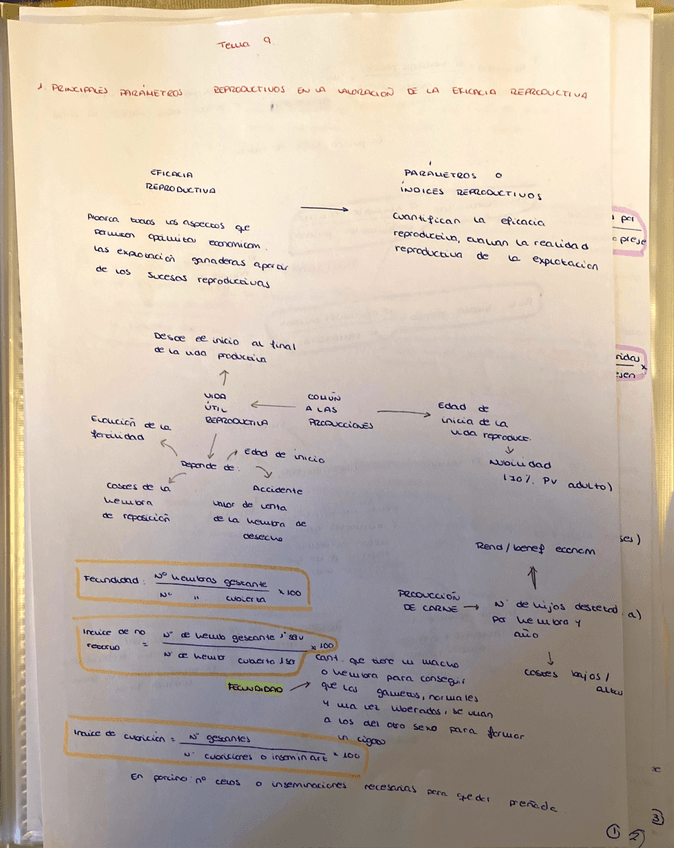 Tema 9
1. PRINCIPALES PARÁMETROS REPRODUCTIVOS EN LA VALORACIÓN DE LA EFICACIA REPRODUCTIVA
EFICACIA
REPRODUCTIVA
PARÁMETROS O
ÍNDICES REPRODUCTIVOS
Abarca todos los aspectos que
permiten optimizar economicam.
las explotación ganaderas a partir
de los sucesos reproductivos
Cuantifican la eficacia
reproductiva, evaluan la realidad
reproductiva de la explotación
Desde el inicio al final
de la vida productiva
VIDA
ÚTIL
REPRODUCTIVA
COMÚN
A LAS
PRODUCCIONES
Edad de
inicio de la
vida reproduct.
Nubilidad
(20% PV adulto)
Evolución de la
fertilidad
Depende de:
Edad de inicio
Costes de la
hembra
de reposición
Accidente
Valor de venta
de la hembra de
desecho
Rend/benef econom
PRODUCCIÓN
DE CARNE
Nº de hijos destetad
por hembra y
año
costes bajos/
altos
Fecundidad: Nº hembras gestante
Nº " cubierta
x 100
Indice de no
retorno
= Nº de hemb gestante 1ª
Nº de hembr cubierta
x 100
FECUNDIDAD
Cant. que tiene un macho
o hembra para conseguir
que los gametos, normales
y una vez liberados, se unan
a los del otro sexo para formar
un cigoto
Indice de cubrición = Nº gestantes
Nº cubriciones o insemin art
x 100
En porcino nº celos o inseminaciones necesarias para quedar preñada.
por
prese
x
a)
1
2
3